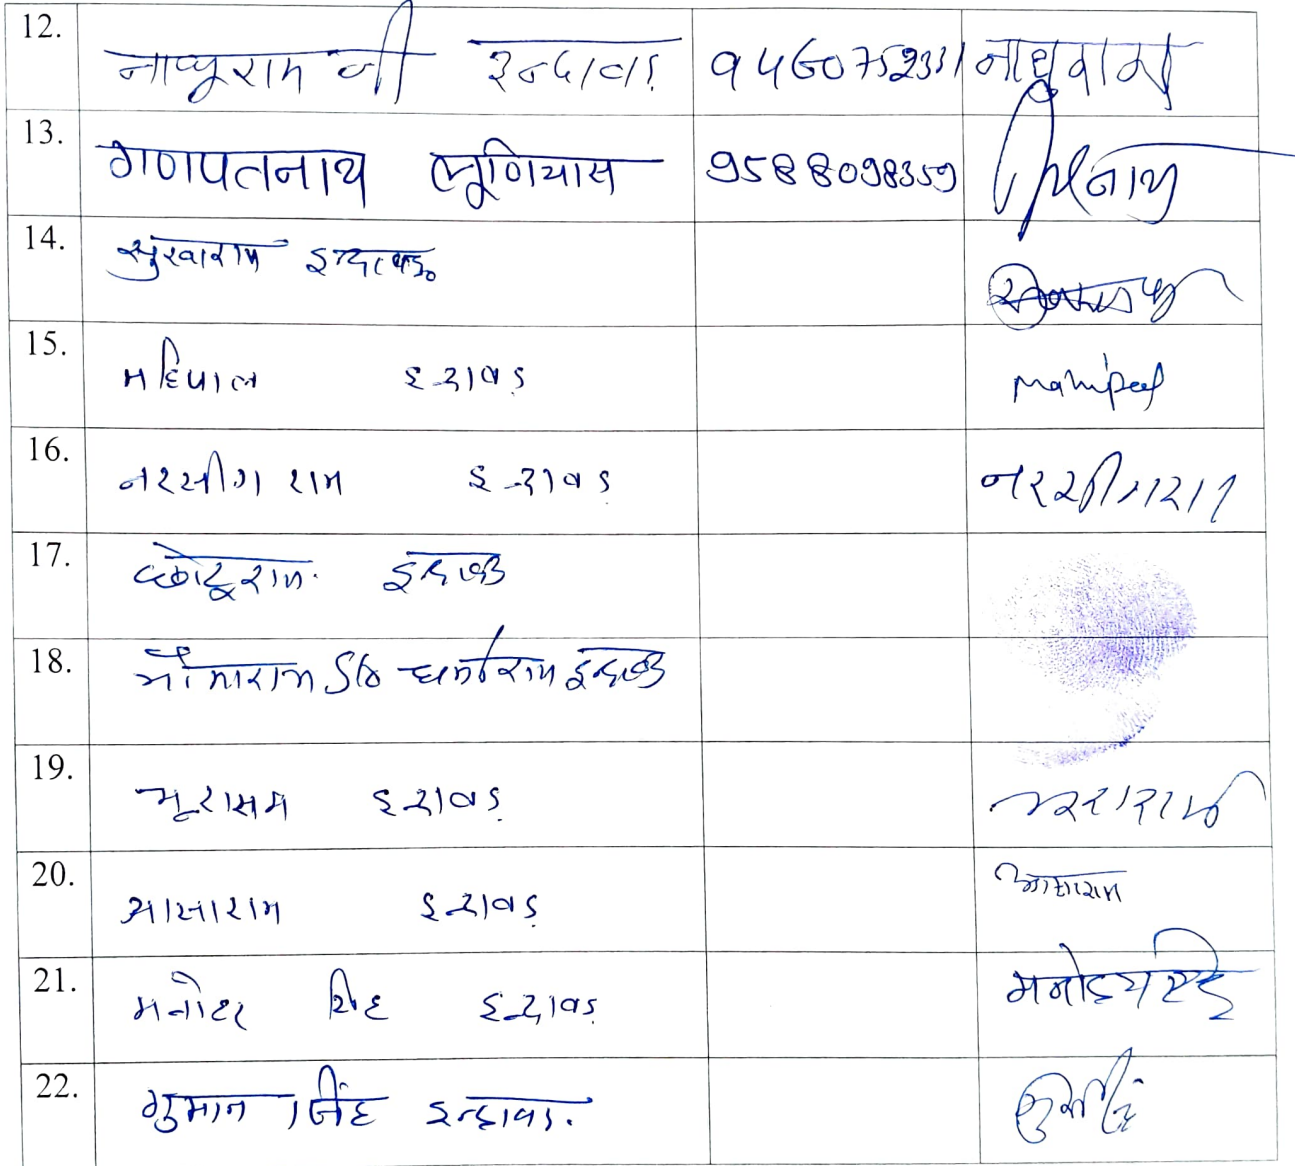 12. नाथूराम जी इन्दावड़ 9460752331 नाथुराम
13. गणपतनाथ लूणियास 9588098359
14. सुखाराम इन्दावड़
15. महिपाल इन्दावड़ Mahipal
16. नरसीग राम इन्दावड़ नरसीगराम
17. छोटूराम इन्दावड़
18. भोमाराम S/o धर्माराम इन्दावड़
19. भूराराम इन्दावड़
20. आसाराम इन्दावड़ आसाराम
21. मनोहर सिंह इन्दावड़ मनोहर सिंह
22. गुमान सिंह इन्दावड़.